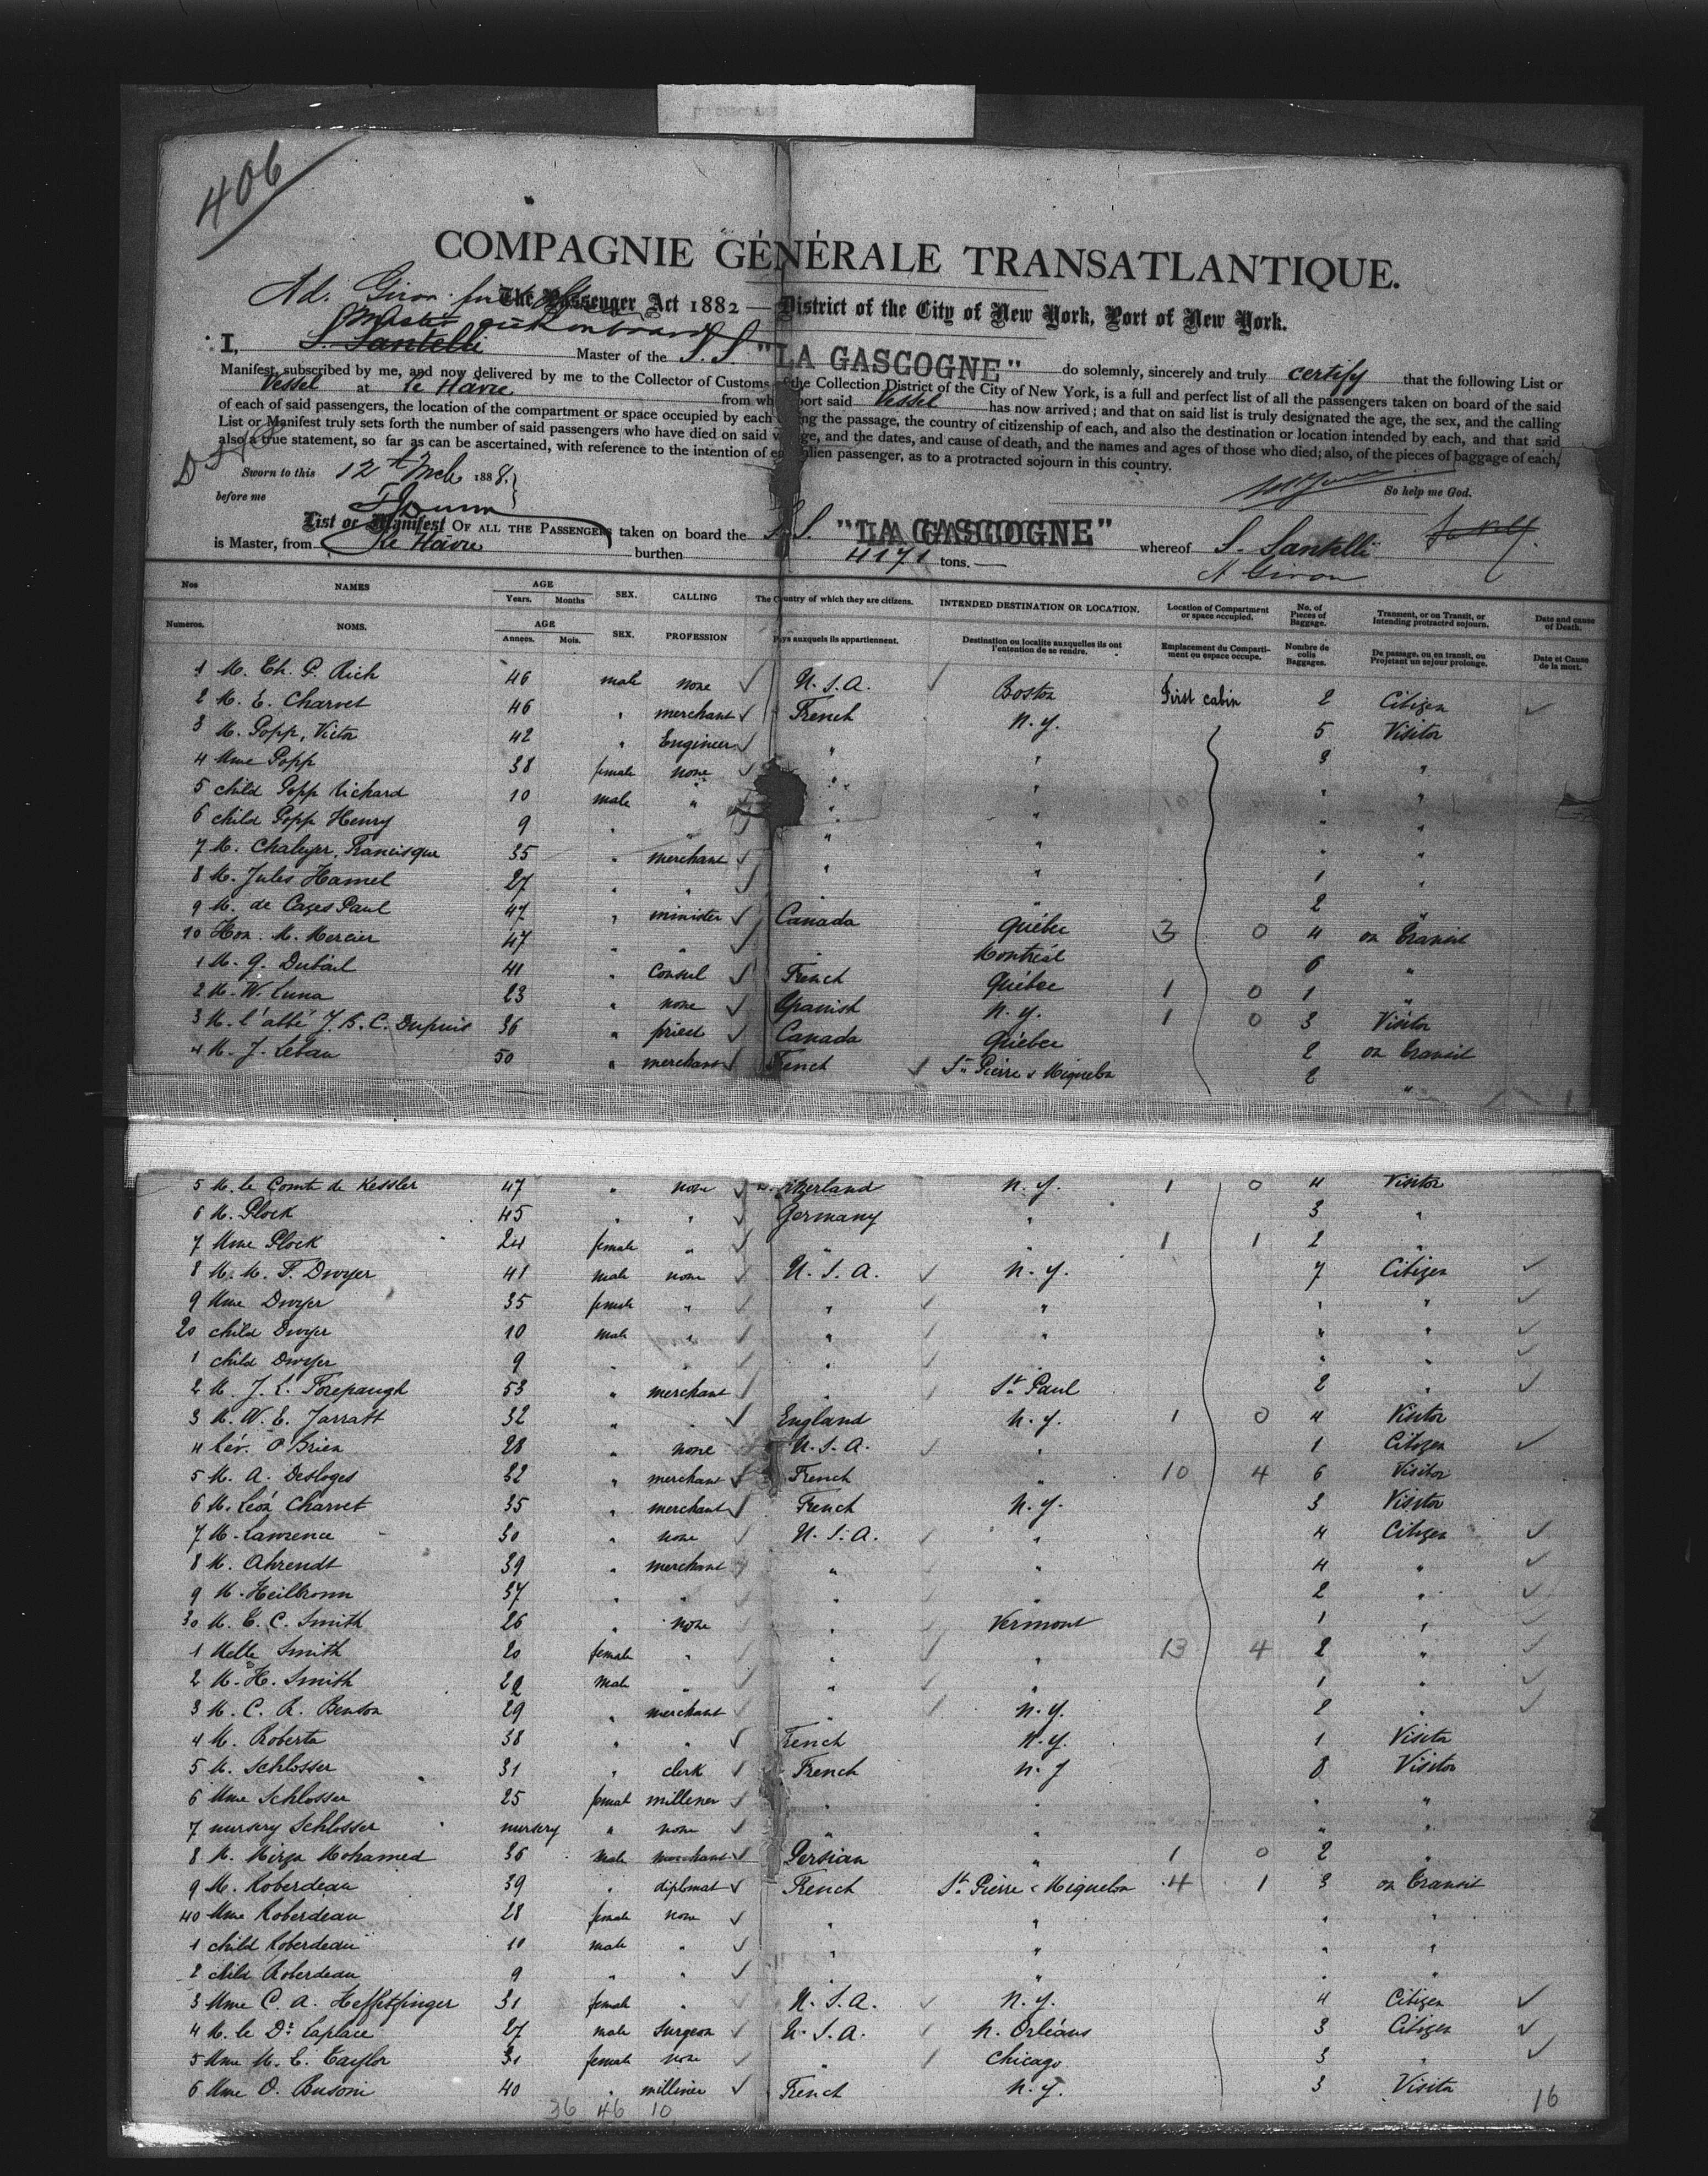 406
COMPAGNIE GÉNÉRALE TRANSATLANTIQUE.
Ad. Giron
The Passenger Act 1882 — District of the City of New York, Port of New York.
Master
I, S. Santelli Master of the S.S. "LA GASCOGNE" do solemnly, sincerely and truly certify that the following List or
Manifest, subscribed by me, and now delivered by me to the Collector of Customs of the Collection District of the City of New York, is a full and perfect list of all the passengers taken on board of the said
Vessel at Le Havre from which port said Vessel has now arrived; and that on said list is truly designated the age, the sex, and the calling
of each of said passengers, the location of the compartment or space occupied by each during the passage, the country of citizenship of each, and also the destination or location intended by each, and that said
List or Manifest truly sets forth the number of said passengers who have died on said voyage, and the dates, and cause of death, and the names and ages of those who died; also, of the pieces of baggage of each,
also a true statement, so far as can be ascertained, with reference to the intention of each alien passenger, as to a protracted sojourn in this country.
Sworn to this 12th Mch 1888.
So help me God.
before me
List or Manifest OF ALL THE PASSENGERS taken on board the S.S. "LA GASCOGNE" whereof S. Santelli
is Master, from Le Havre burthen 4171 tons.
A Giron
Nos NAMES AGE Years. Months SEX. CALLING The Country of which they are citizens. INTENDED DESTINATION OR LOCATION. Location of Compartment or space occupied. No. of Pieces of Baggage. Transient, or on Transit, or Intending protracted sojourn. Date and cause of Death.
Numeros. NOMS. AGE Années. Mois. SEX. PROFESSION Pays auxquels ils appartiennent. Destination ou localite auxquelles ils ont l'entention de se rendre. Emplacement du Compartiment ou espace occupe. Nombre de colis Baggages. De passage, ou en transit, ou Projetant un sejour prolonge. Date et Cause de la mort.
1 M. Ch. P. Rich 46 male none U.S.A. Boston First cabin 2 Citizen
2 M. E. Charvet 46 " merchant French N.Y. 5 Visitor
3 M. Popp, Victor 42 " Engineer " " 3 "
4 Mme Popp 38 female none " " " "
5 child Popp Richard 10 male " " " " "
6 child Popp Henry 9 " " " " " "
7 M. Chaleyer, Francisque 35 " merchant " " 1 "
8 M. Jules Hamel 27 " " " " 2 "
9 M. de Cazes Paul 47 " minister Canada Québec 3 0 4 on Transit
10 Hon. M. Mercier 47 " " " Montréal 6 "
1 M. G. Dubail 41 " Consul French Québec 1 0 1 "
2 M. W. Luna 23 " none Spanish N.Y. 1 0 3 Visitor
3 M. l'abbé J.B.C. Dupuis 36 " priest Canada Québec 2 on Transit
4 M. J. Leban 50 " merchant French St Pierre & Miquelon 2 "
5 M. le Comte de Kessler 47 " none Switzerland N.Y. 1 0 4 Visitor
6 M. Plock 45 " " Germany " 3 "
7 Mme Plock 24 female " " " 1 1 2 "
8 M. M. F. Dwyer 41 male none U.S.A. N.Y. 7 Citizen
9 Mme Dwyer 35 female " " " " "
20 child Dwyer 10 male " " " " "
1 child Dwyer 9 " " " " "
2 M. J. L. Forepaugh 53 " merchant " St Paul 2 "
3 M. W. E. Jarratt 32 " " England N.Y. 1 0 4 Visitor
4 Rév. O'Brien 28 " none U.S.A. " 1 Citizen
5 M. A. Desloges 32 " merchant French " 10 4 6 Visitor
6 M. Léon Charvet 35 " merchant French N.Y. 3 Visitor
7 M. Lawrence 30 " none U.S.A. " 4 Citizen
8 M. Ahrendt 39 " merchant " " 4 "
9 M. Heilbronn 37 " " " 2 "
30 M. E. C. Smith 26 " none " Vermont 1 "
1 Melle Smith 20 female " " " 13 4 2 "
2 M. H. Smith male " " " 1 "
3 M. C. R. Benson 29 " merchant " N.Y. 2 "
4 M. Roberta 38 " " French N.Y. 1 Visitor
5 M. Schlosser 31 " clerk French N.Y 8 Visitor
6 Mme Schlosser 25 female milliner " " " "
7 nursery Schlosser nursery " none " " " "
8 M. Mirza Mohamed 36 male merchant Persian " 1 0 2 "
9 M. Roberdeau 39 " diplomat French St Pierre & Miquelon 4 1 3 on Transit
40 Mme Roberdeau 28 female none " " " "
1 child Roberdeau 10 male " " " " "
2 child Roberdeau 9 " " " " " "
3 Mme C. A. Heffelfinger 31 female " U.S.A. N.Y. 4 Citizen
4 M. le Dr Laplace 27 male surgeon U.S.A. N. Orléans 3 Citizen
5 Mme M. E. Taylor 31 female none " Chicago 3 "
6 Mme O. Busoni 40 " milliner French N.Y. 3 Visitor
36 46 10 16